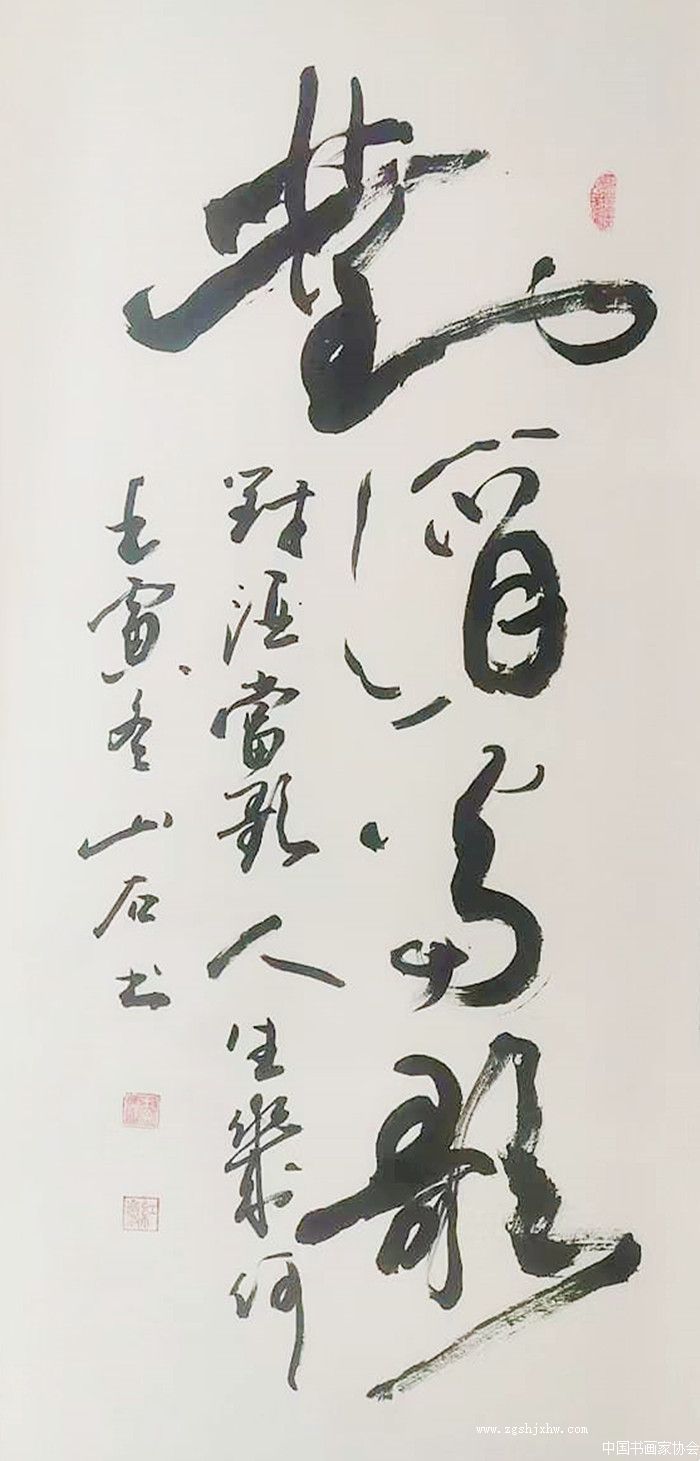 對酒當歌
對酒當歌 人生幾何
壬寅冬 山石书
www.zgshjxhw.com
中国书画家协会